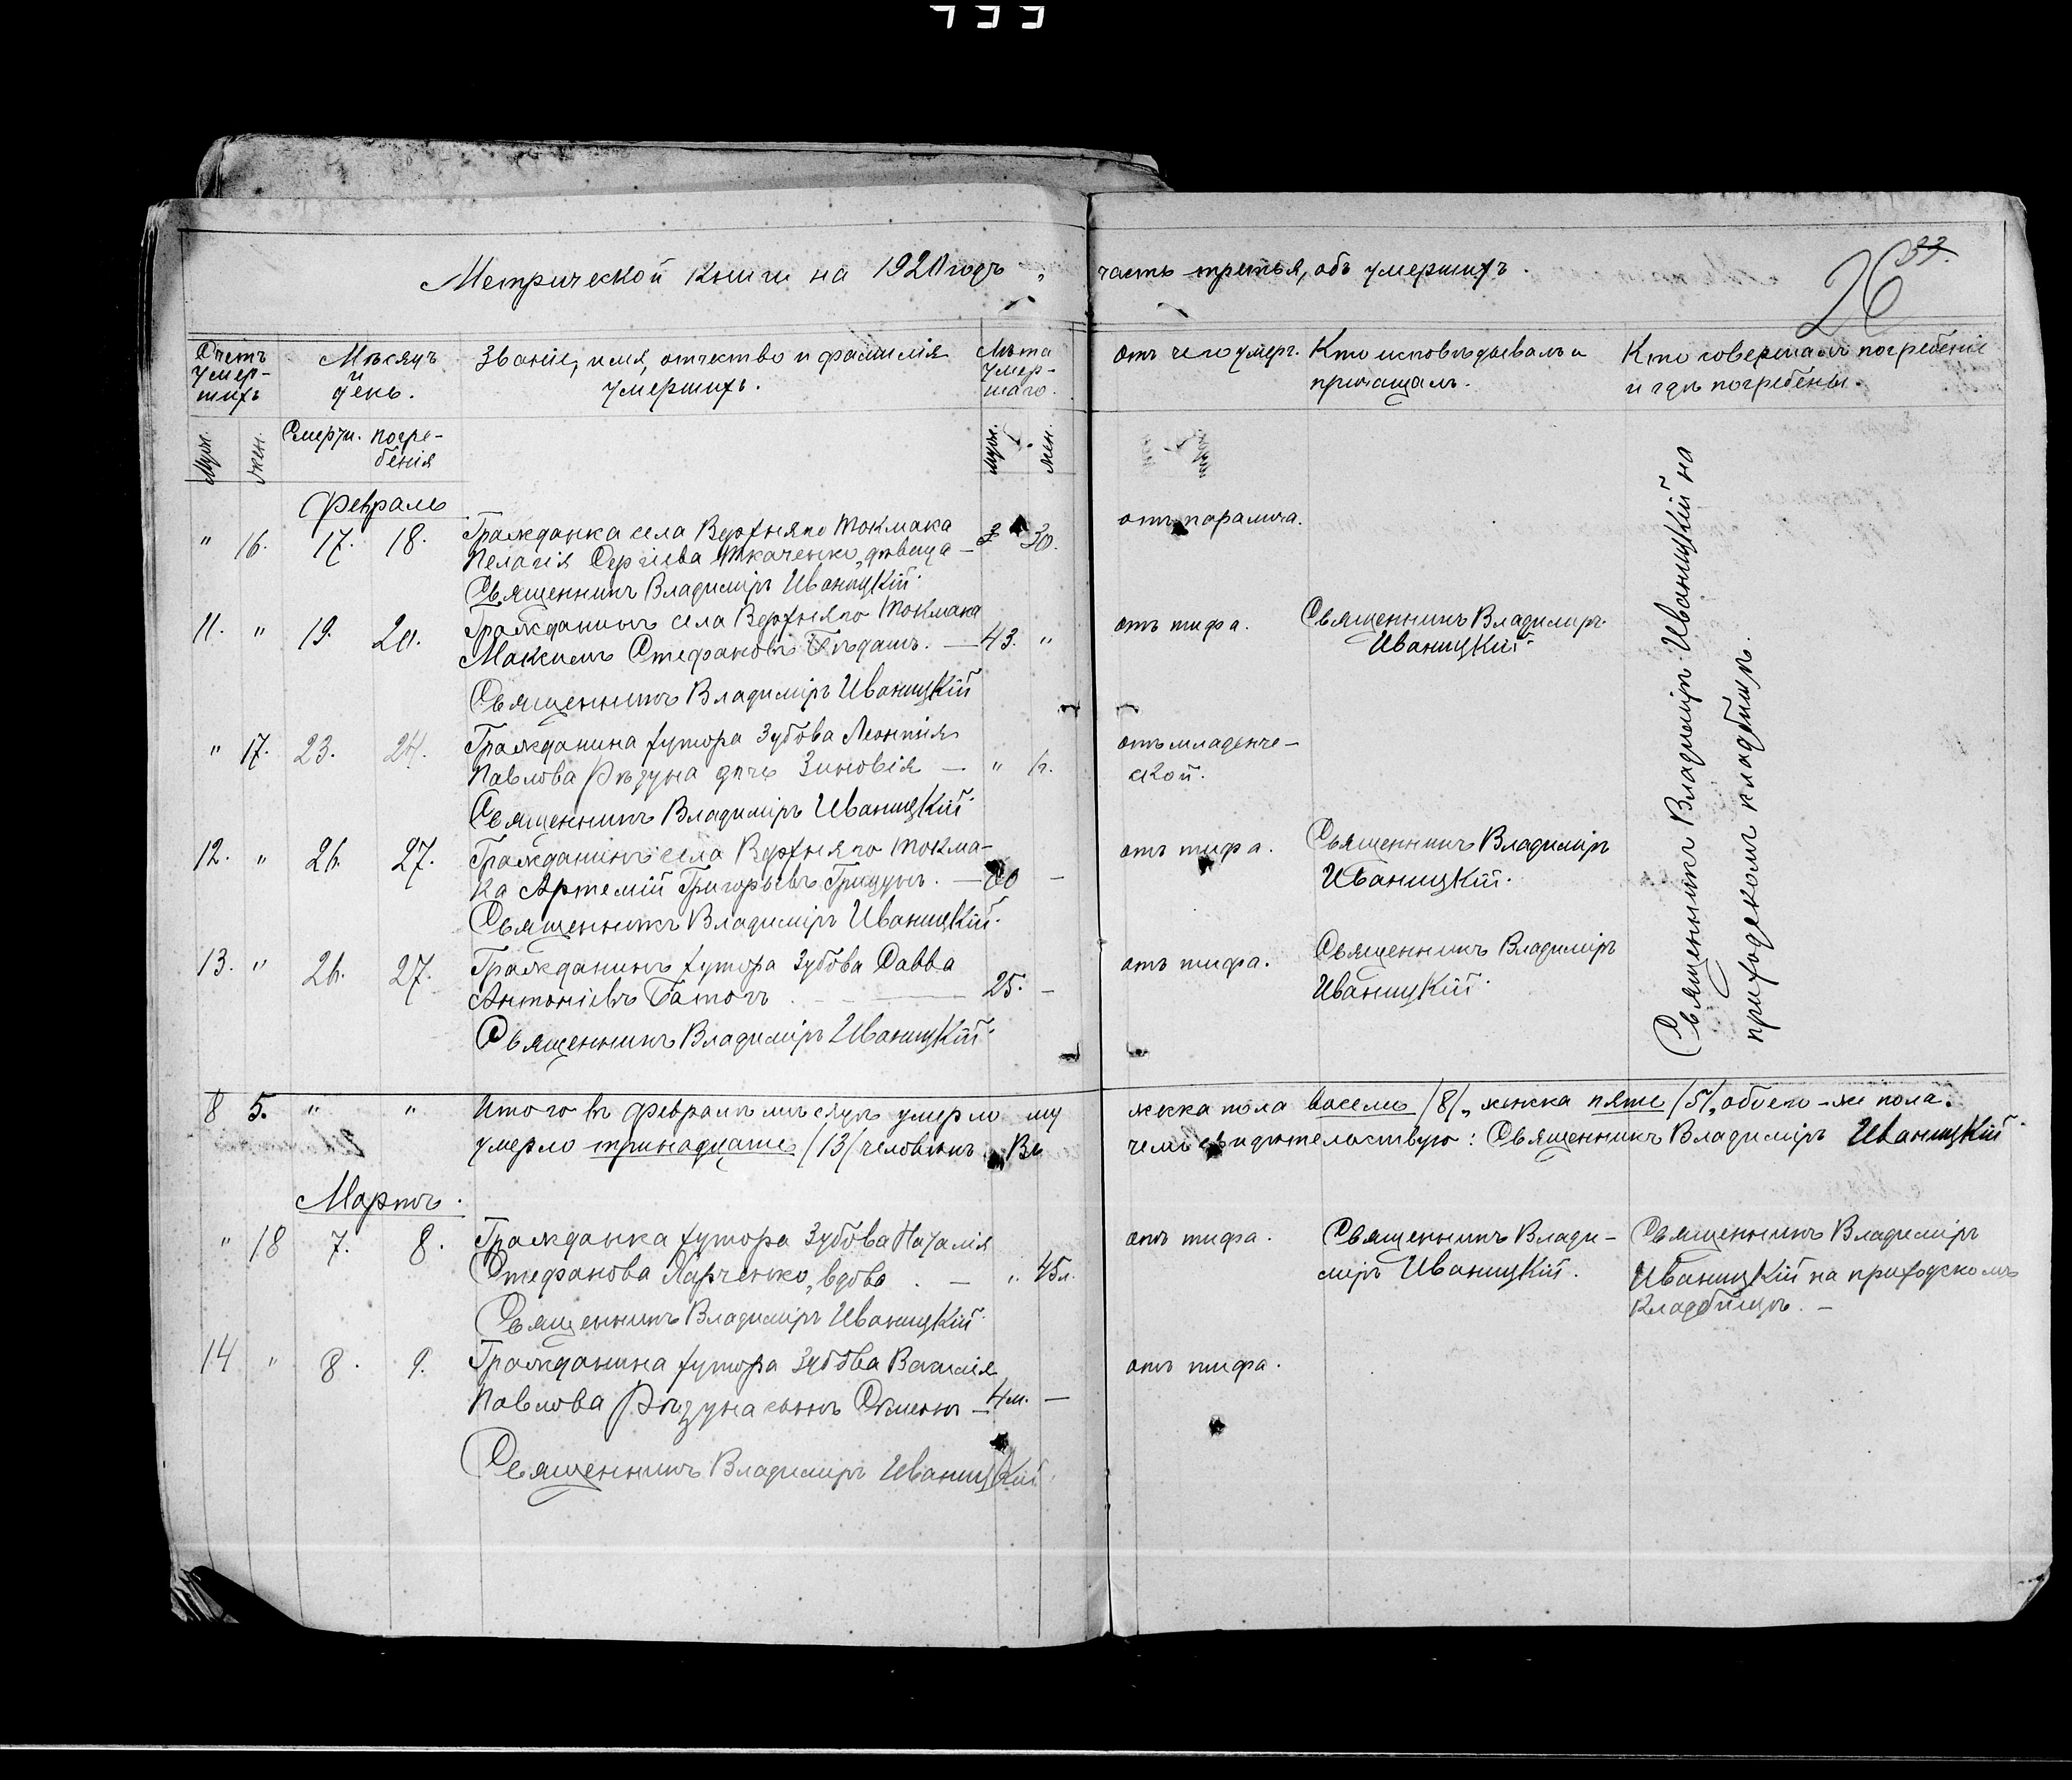 Метрической книги на 1920 годъ, часть третья, объ умершихъ.
26 33.
Счетъ умер-шихъ
Мѣсяцъ и день.
Званіе, имя, отчество и фамилія умершихъ.
Лѣта умер-шаго.
отъ чего умерг.
Кто исповѣдывалъ и причащалъ.
Кто совершалъ погребеніе и гдѣ погребены.
Муж. жен. Смерти. погре-бенія муж. жен.
Февраль
" 16. 17. 18. Гражданка села Верхняго Токмака отъ паралича.
Пелагія Сергіева Ткаченко, дѣвица — 30.
Священникъ Владиміръ Иваницкій.
11. " 19. 20. Гражданинъ села Верхняго Токмака отъ тифа. Священникъ Владиміръ
Максимъ Стефановъ Бѣдашъ. — 43. " Иваницкій
Священникъ Владиміръ Иваницкій
" 17. 23. 24. Гражданина хутора Зубова Леонтія отъ младенче-
Павлова Рѣзуна дочь Зиновія — " 1г. ской.
Священникъ Владиміръ Иваницкій
12. " 26. 27. Гражданинъ села Верхняго Токма- отъ тифа. Священникъ Владиміръ
ка Артемій Григорьевъ Грицунъ. — 60 — Иваницкій.
Священникъ Владиміръ Иваницкій.
13. " 26. 27. Гражданинъ хутора Зубова Савва отъ тифа. Священникъ Владиміръ
Антоніевъ Батогъ. — 25. — Иваницкій.
Священникъ Владиміръ Иваницкій
Священникъ Владиміръ Иваницкій на
приходскомъ кладбищѣ.
8 5. " " Итого въ Февралѣ мѣсяцѣ умерло мужеска пола восемь /8/, женска пять /5/, обоего-же пола.
умерло тринадцать /13/ человѣкъ. Въ чемъ свидѣтельствую: Священникъ Владиміръ Иваницкій
Мартъ.
" 18 7. 8. Гражданка хутора Зубова Наталія отъ тифа. Священникъ Влади- Священникъ Владиміръ
Стефанова Ларченко, вдова. — " 45л. міръ Иваницкій. Иваницкій на приходскомъ
Священникъ Владиміръ Иваницкій. кладбищѣ. —
14 " 8. 9. Гражданина хутора Зубова Василія отъ тифа.
Павлова Рѣзуна сынъ Сѵмеонъ — 4м. —
Священникъ Владиміръ Иваницкій.